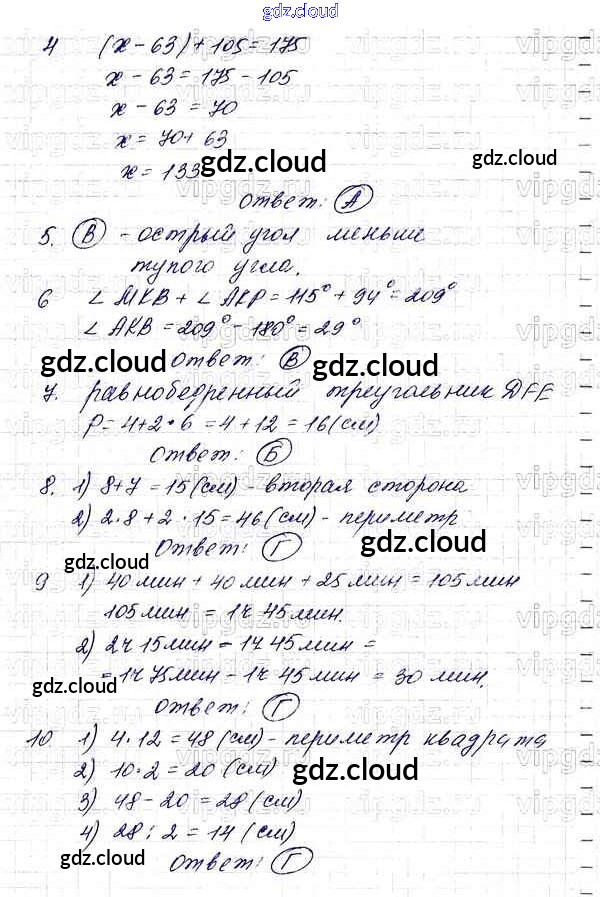 gdz.cloud
gdz.cloud
4 (x - 63) + 105 = 175
x - 63 = 175 - 105
x - 63 = 70
x = 70 + 63
x = 133
gdz.cloud
gdz.cloud
Ответ: А
5. В - острый угол меньше
тупого угла.
6 ∠MKB + ∠AKP = 115° + 94° = 209°
∠AKB = 209° - 180° = 29°
gdz.cloud
Ответ: В
gdz.cloud
7. равнобедренный треугольник DFE
P = 4+2·6 = 4 + 12 = 16 (см)
Ответ: Б
8. 1) 8+7 = 15 (см) - вторая сторона
2) 2·8 + 2·15 = 46 (см) - периметр
Ответ: Г
gdz.cloud
gdz.cloud
9 1) 40 мин + 40 мин + 25 мин = 105 мин
105 мин = 1ч 45 мин.
2) 2ч 15 мин - 1ч 45 мин =
= 1ч 75 мин - 1ч 45 мин = 30 мин.
gdz.cloud
Ответ: Г
10. 1) 4·12 = 48 (см) - периметр квадрата
2) 10·2 = 20 (см)
gdz.cloud
3) 48 - 20 = 28 (см)
4) 28 : 2 = 14 (см)
gdz.cloud
Ответ: Г
gdz.cloud